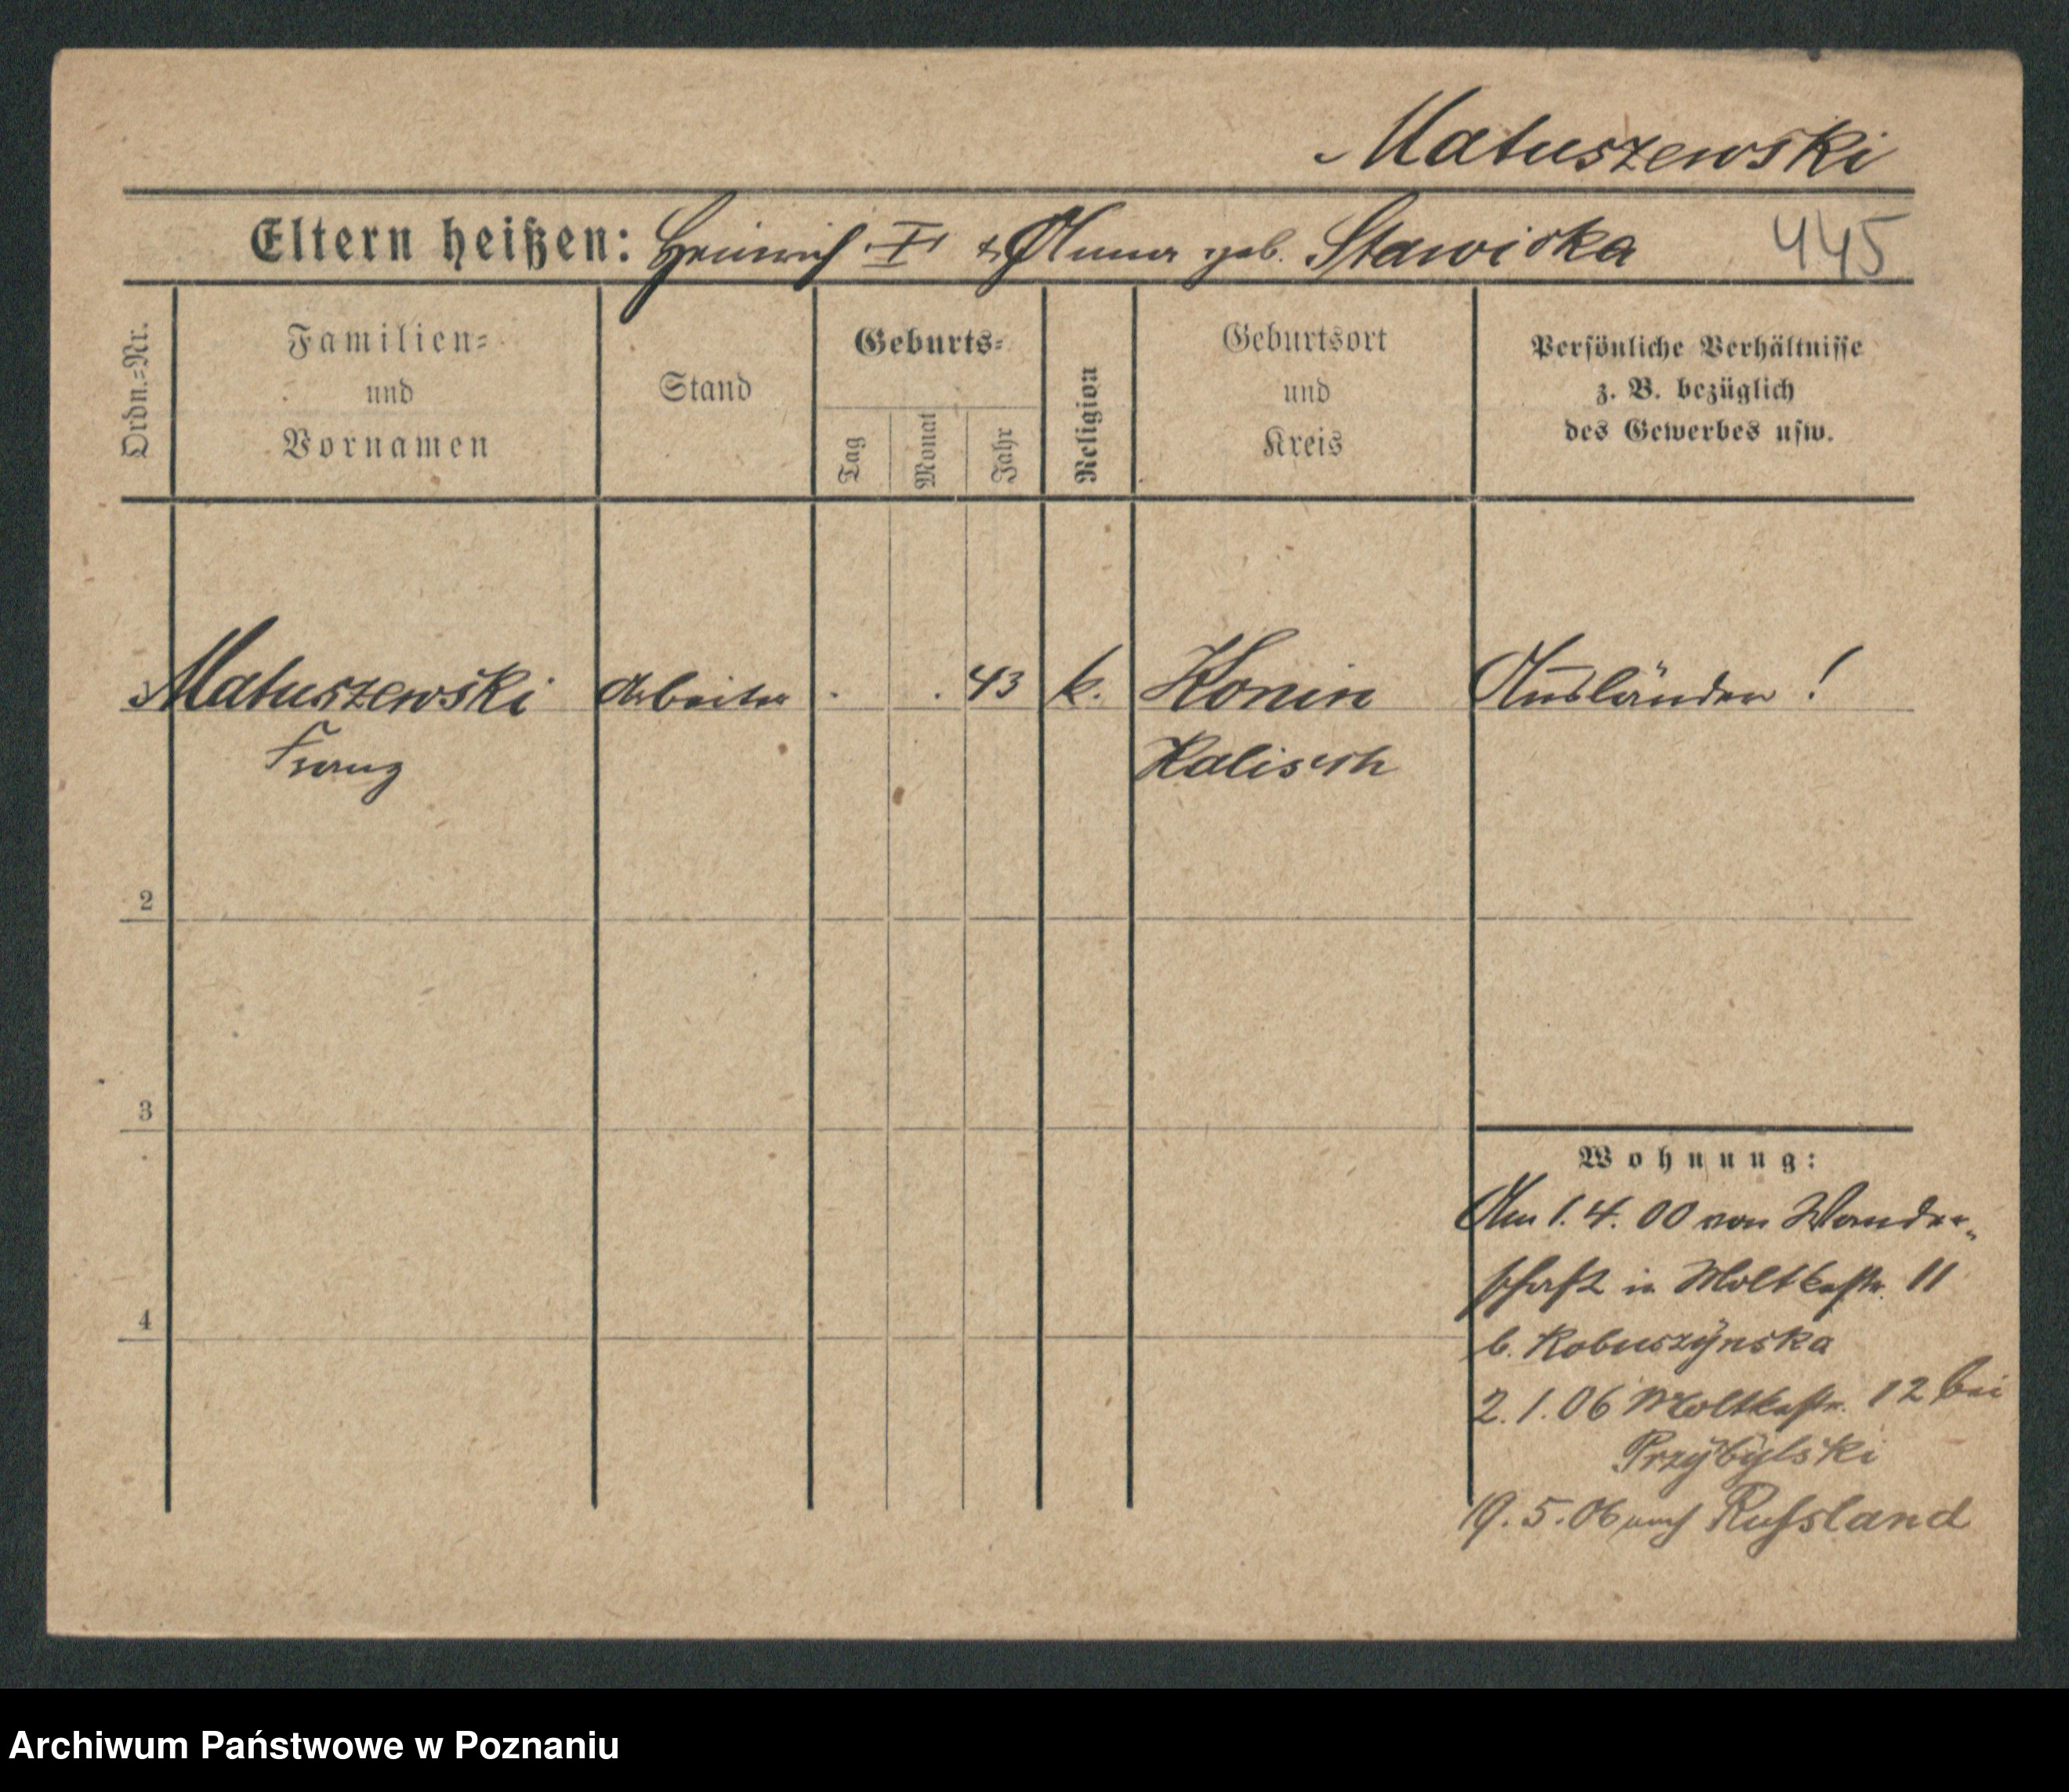 Matuszewski
Eltern heißen: Heinrich I & Anna geb. Stawicka 445
Ordn.-Nr.
Familien- und Vornamen
Stand
Geburts-
Tag
Monat
Jahr
Religion
Geburtsort und Kreis
Persönliche Verhältnisse
z. B. bezüglich
des Gewerbes usw.
Matuszewski Arbeiter . . 43 k. Konin Ausländer !
Franz Kalisch
2
3
4
Wohnung:
Am 1. 4. 00 von Wander-
schaft in Moltkestr. 11
b. Kobuszÿnska
2. 1. 06 Moltkestr. 12 bei
Przÿbÿlski
19. 5. 06 nach Russland
Archiwum Państwowe w Poznaniu